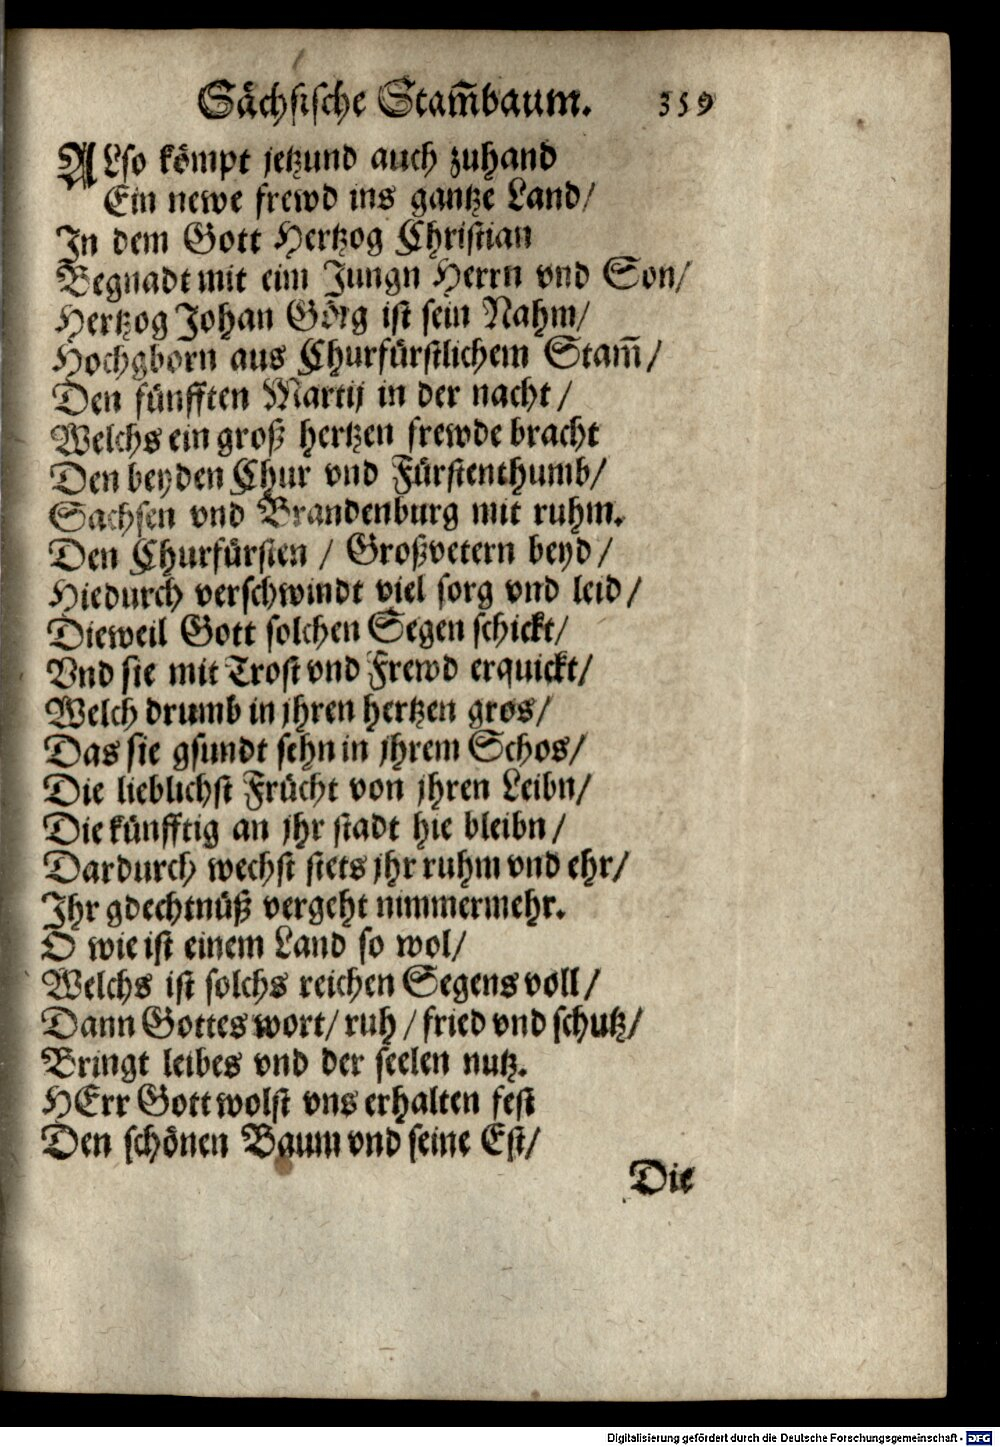 Sächsische Stam̃baum. 359
ALso kömpt jetzund auch zuhand
Ein newe frewd ins gantze Land/
In dem Gott Hertzog Christian
Begnadt mit eim Jungn Herrn vnd Son/
Hertzog Johan Görg ist sein Nahm/
Hochgborn aus Churfürstlichem Stam̃/
Den fünfften Martij in der nacht/
Welchs ein groß hertzen frewde bracht
Den beyden Chur vnd Fürstenthumb/
Sachsen vnd Brandenburg mit ruhm.
Den Churfürsten / Großvetern beyd/
Hiedurch verschwindt viel sorg vnd leid/
Dieweil Gott solchen Segen schickt/
Vnd sie mit Trost vnd Frewd erquickt/
Welch drumb in jhren hertzen gros/
Das sie gsundt sehn in jhrem Schos/
Die lieblichst Frücht von jhren Leibn/
Die künfftig an jhr stadt hie bleibn/
Dardurch wechst stets jhr ruhm vnd ehr/
Ihr gdechtnüß vergeht nimmermehr.
O wie ist einem Land so wol/
Welchs ist solchs reichen Segens voll/
Dann Gottes wort/ ruh/ fried vnd schutz/
Bringt leibes vnd der seelen nutz.
HErr Gott wolst vns erhalten fest
Den schönen Baum vnd seine Est/
Die
Digitalisierung gefördert durch die Deutsche Forschungsgemeinschaft - DFG